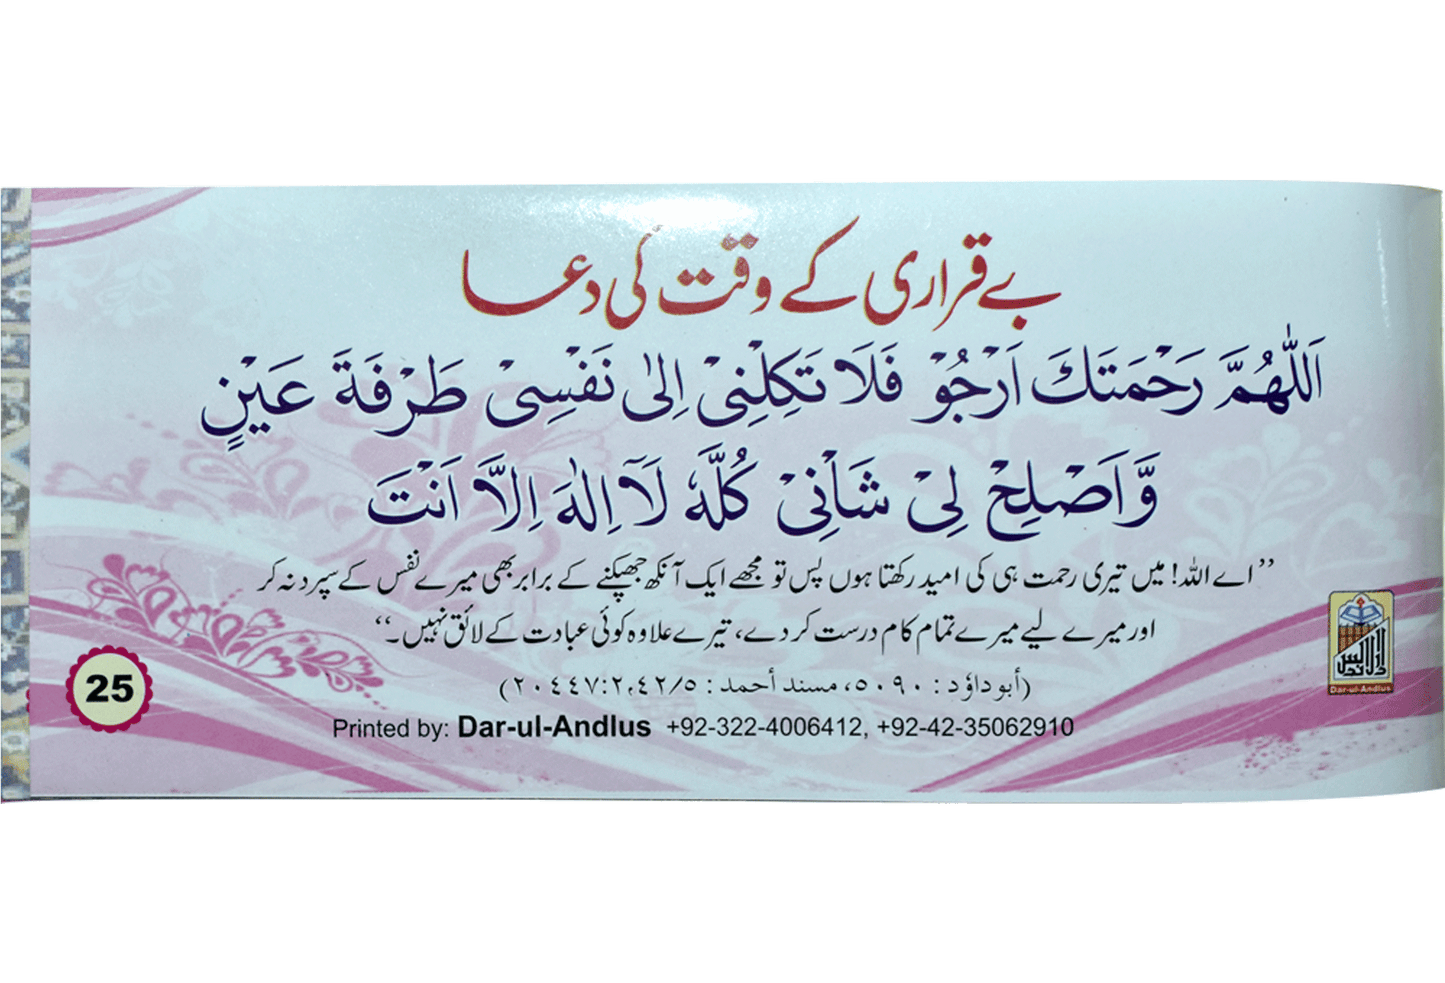 بے قراری کے وقت کی دعا
اَللّٰهُمَّ رَحْمَتَكَ اَرْجُوْ فَلَا تَكِلْنِیْ اِلٰی نَفْسِیْ طَرْفَةَ عَیْنٍ
وَّاَصْلِحْ لِیْ شَاْنِیْ كُلَّهٗ لَآ اِلٰهَ اِلَّا اَنْتَ
’’اے اللہ! میں تیری رحمت ہی کی امید رکھتا ہوں پس تو مجھے ایک آنکھ جھپکنے کے برابر بھی میرے نفس کے سپرد نہ کر
اور میرے لیے میرے تمام کام درست کر دے، تیرے علاوہ کوئی عبادت کے لائق نہیں۔‘‘
(أبو داوٗد : ٥٠٩٠، مسند أحمد : ٤٢/٥، ٢٠٤٤٧:٢)
Printed by: Dar-ul-Andlus +92-322-4006412, +92-42-35062910
25
دارالاندلس
Dar-ul-Andlus